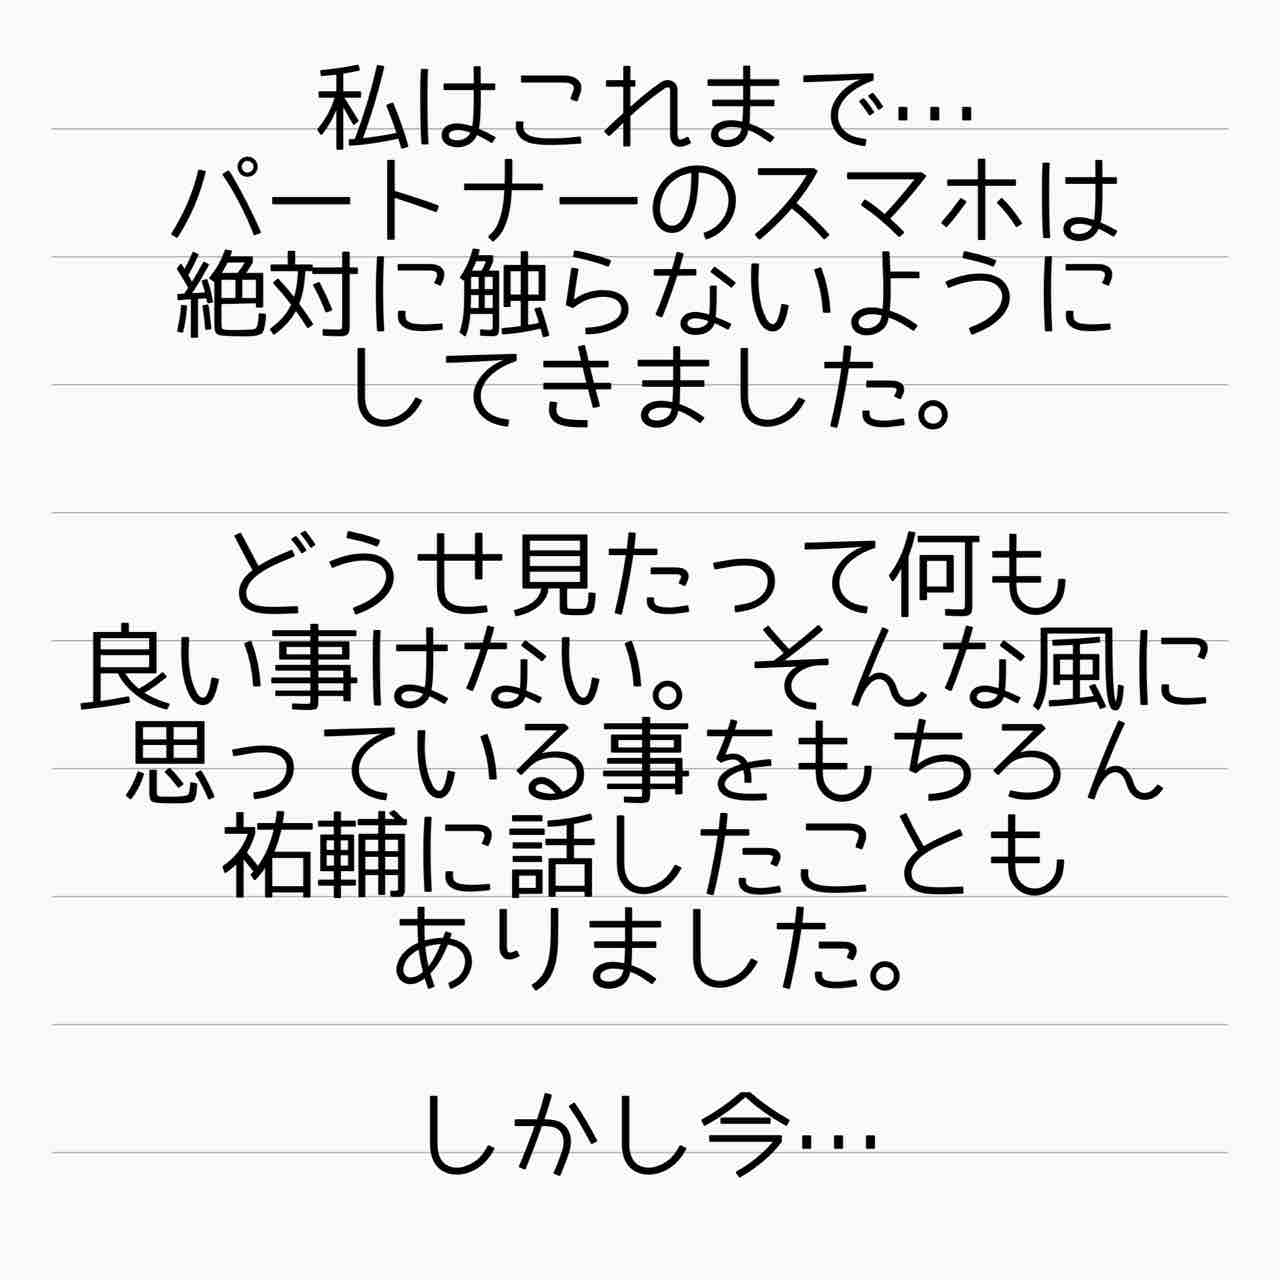 私はこれまで…
パートナーのスマホは
絶対に触らないように
してきました。
どうせ見たって何も
良い事はない。そんな風に
思っている事をもちろん
祐輔に話したことも
ありました。
しかし今…